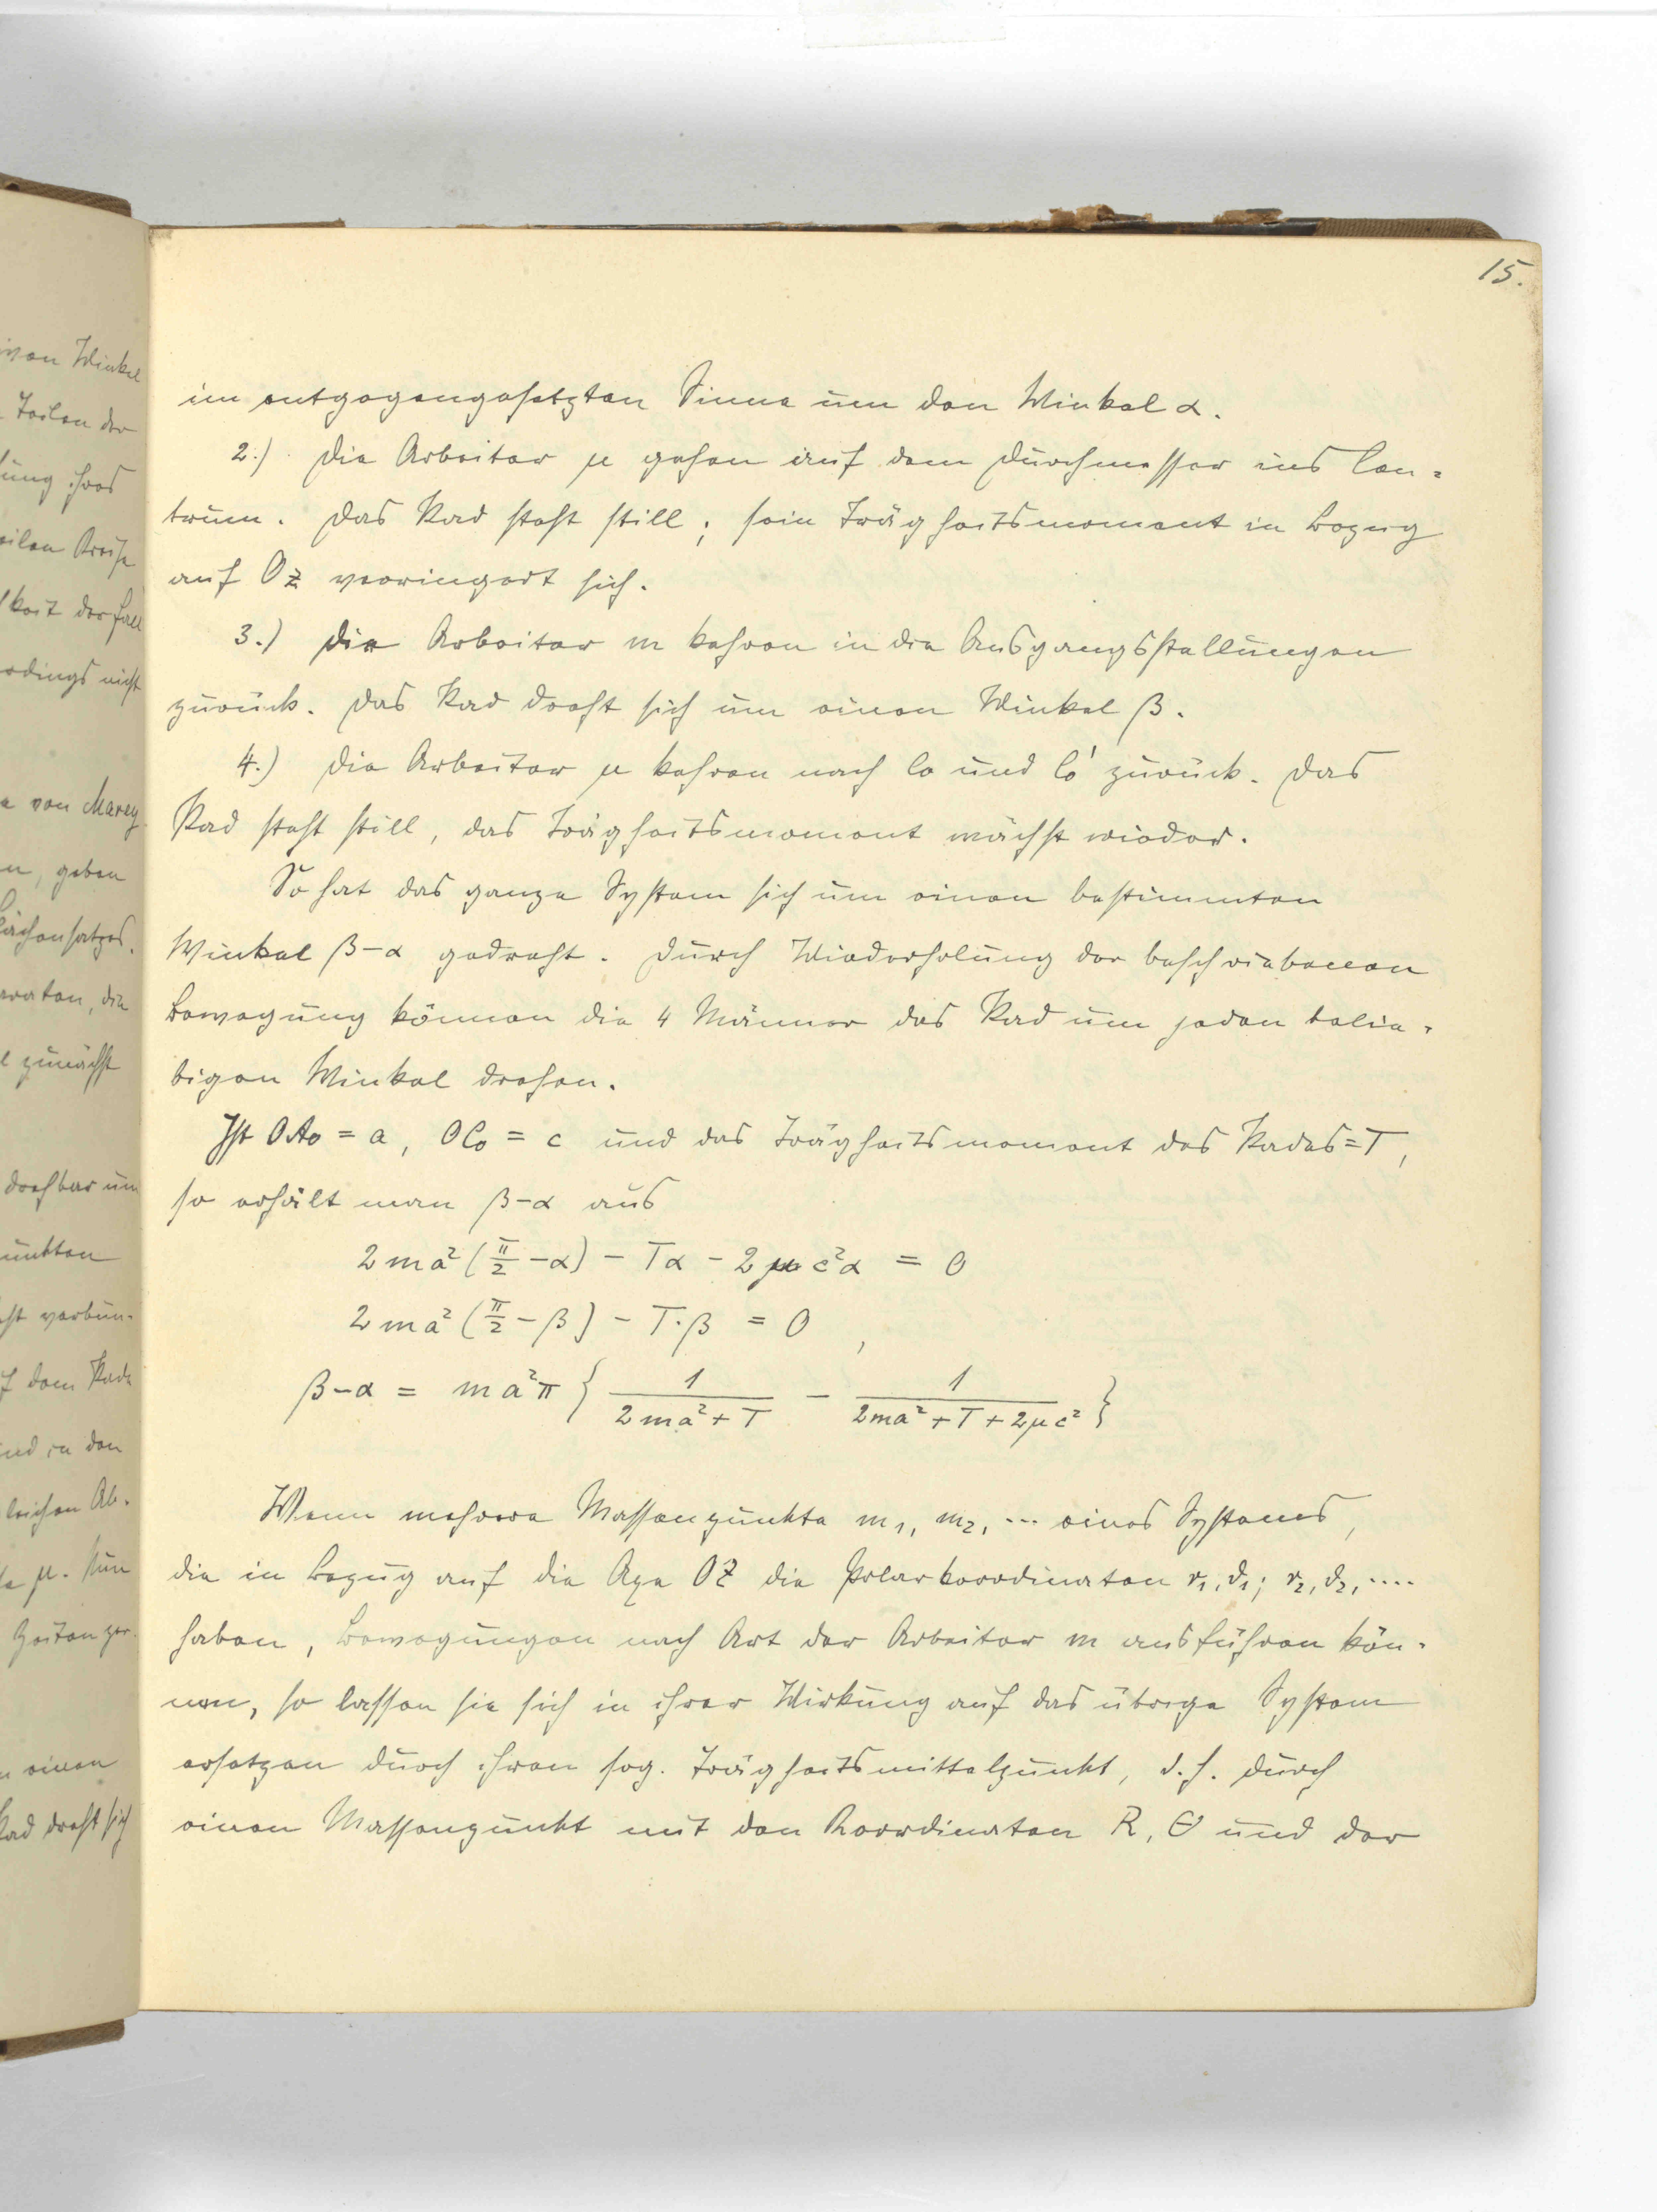 15.
im entgegengesetzten Sinne um den Winkel α.
2.) Die Arbeiter μ gehen auf dem Durchmesser ins Cen-
trum. Das Rad steht still; sein Trägheitsmoment in Bezug
auf Oz verringert sich.
3.) Die Arbeiter m kehren in die Ausgangsstellungen
zurück. Das Rad dreht sich um einen Winkel β.
4.) Die Arbeiter μ kehren nach C₀ und C₀' zurück. Das
Rad steht still, das Trägheitsmoment wächst wieder.
So hat das ganze System sich um einen bestimmten
Winkel β-α gedreht. Durch Wiederholung der beschriebenen
Bewegung können die 4 Männer das Rad um jeden belie-
bigen Winkel drehen.
Ist OA₀ = a, OC₀ = c und das Trägheitsmoment des Rades = T,
so erhält man β-α aus
2ma²(π/2 - α) - Tα - 2μc²α = 0
2ma²(π/2 - β) - T·β = 0,
β-α = ma²π { 1/(2ma²+T) - 1/(2ma²+T+2μc²) }
Wenn mehrere Massenpunkte m₁, m₂, ... eines Systems,
die in Bezug auf die Axe OZ die Polarkoordinaten r₁, ϑ₁; r₂, ϑ₂, ....
haben, Bewegungen nach Art der Arbeiter m ausführen kön-
nen, so lassen sie sich in ihrer Wirkung auf das übrige System
ersetzen durch ihren sog. Trägheitsmittelpunkt, d.h. durch
einen Massenpunkt mit den Koordinaten R, Θ und der